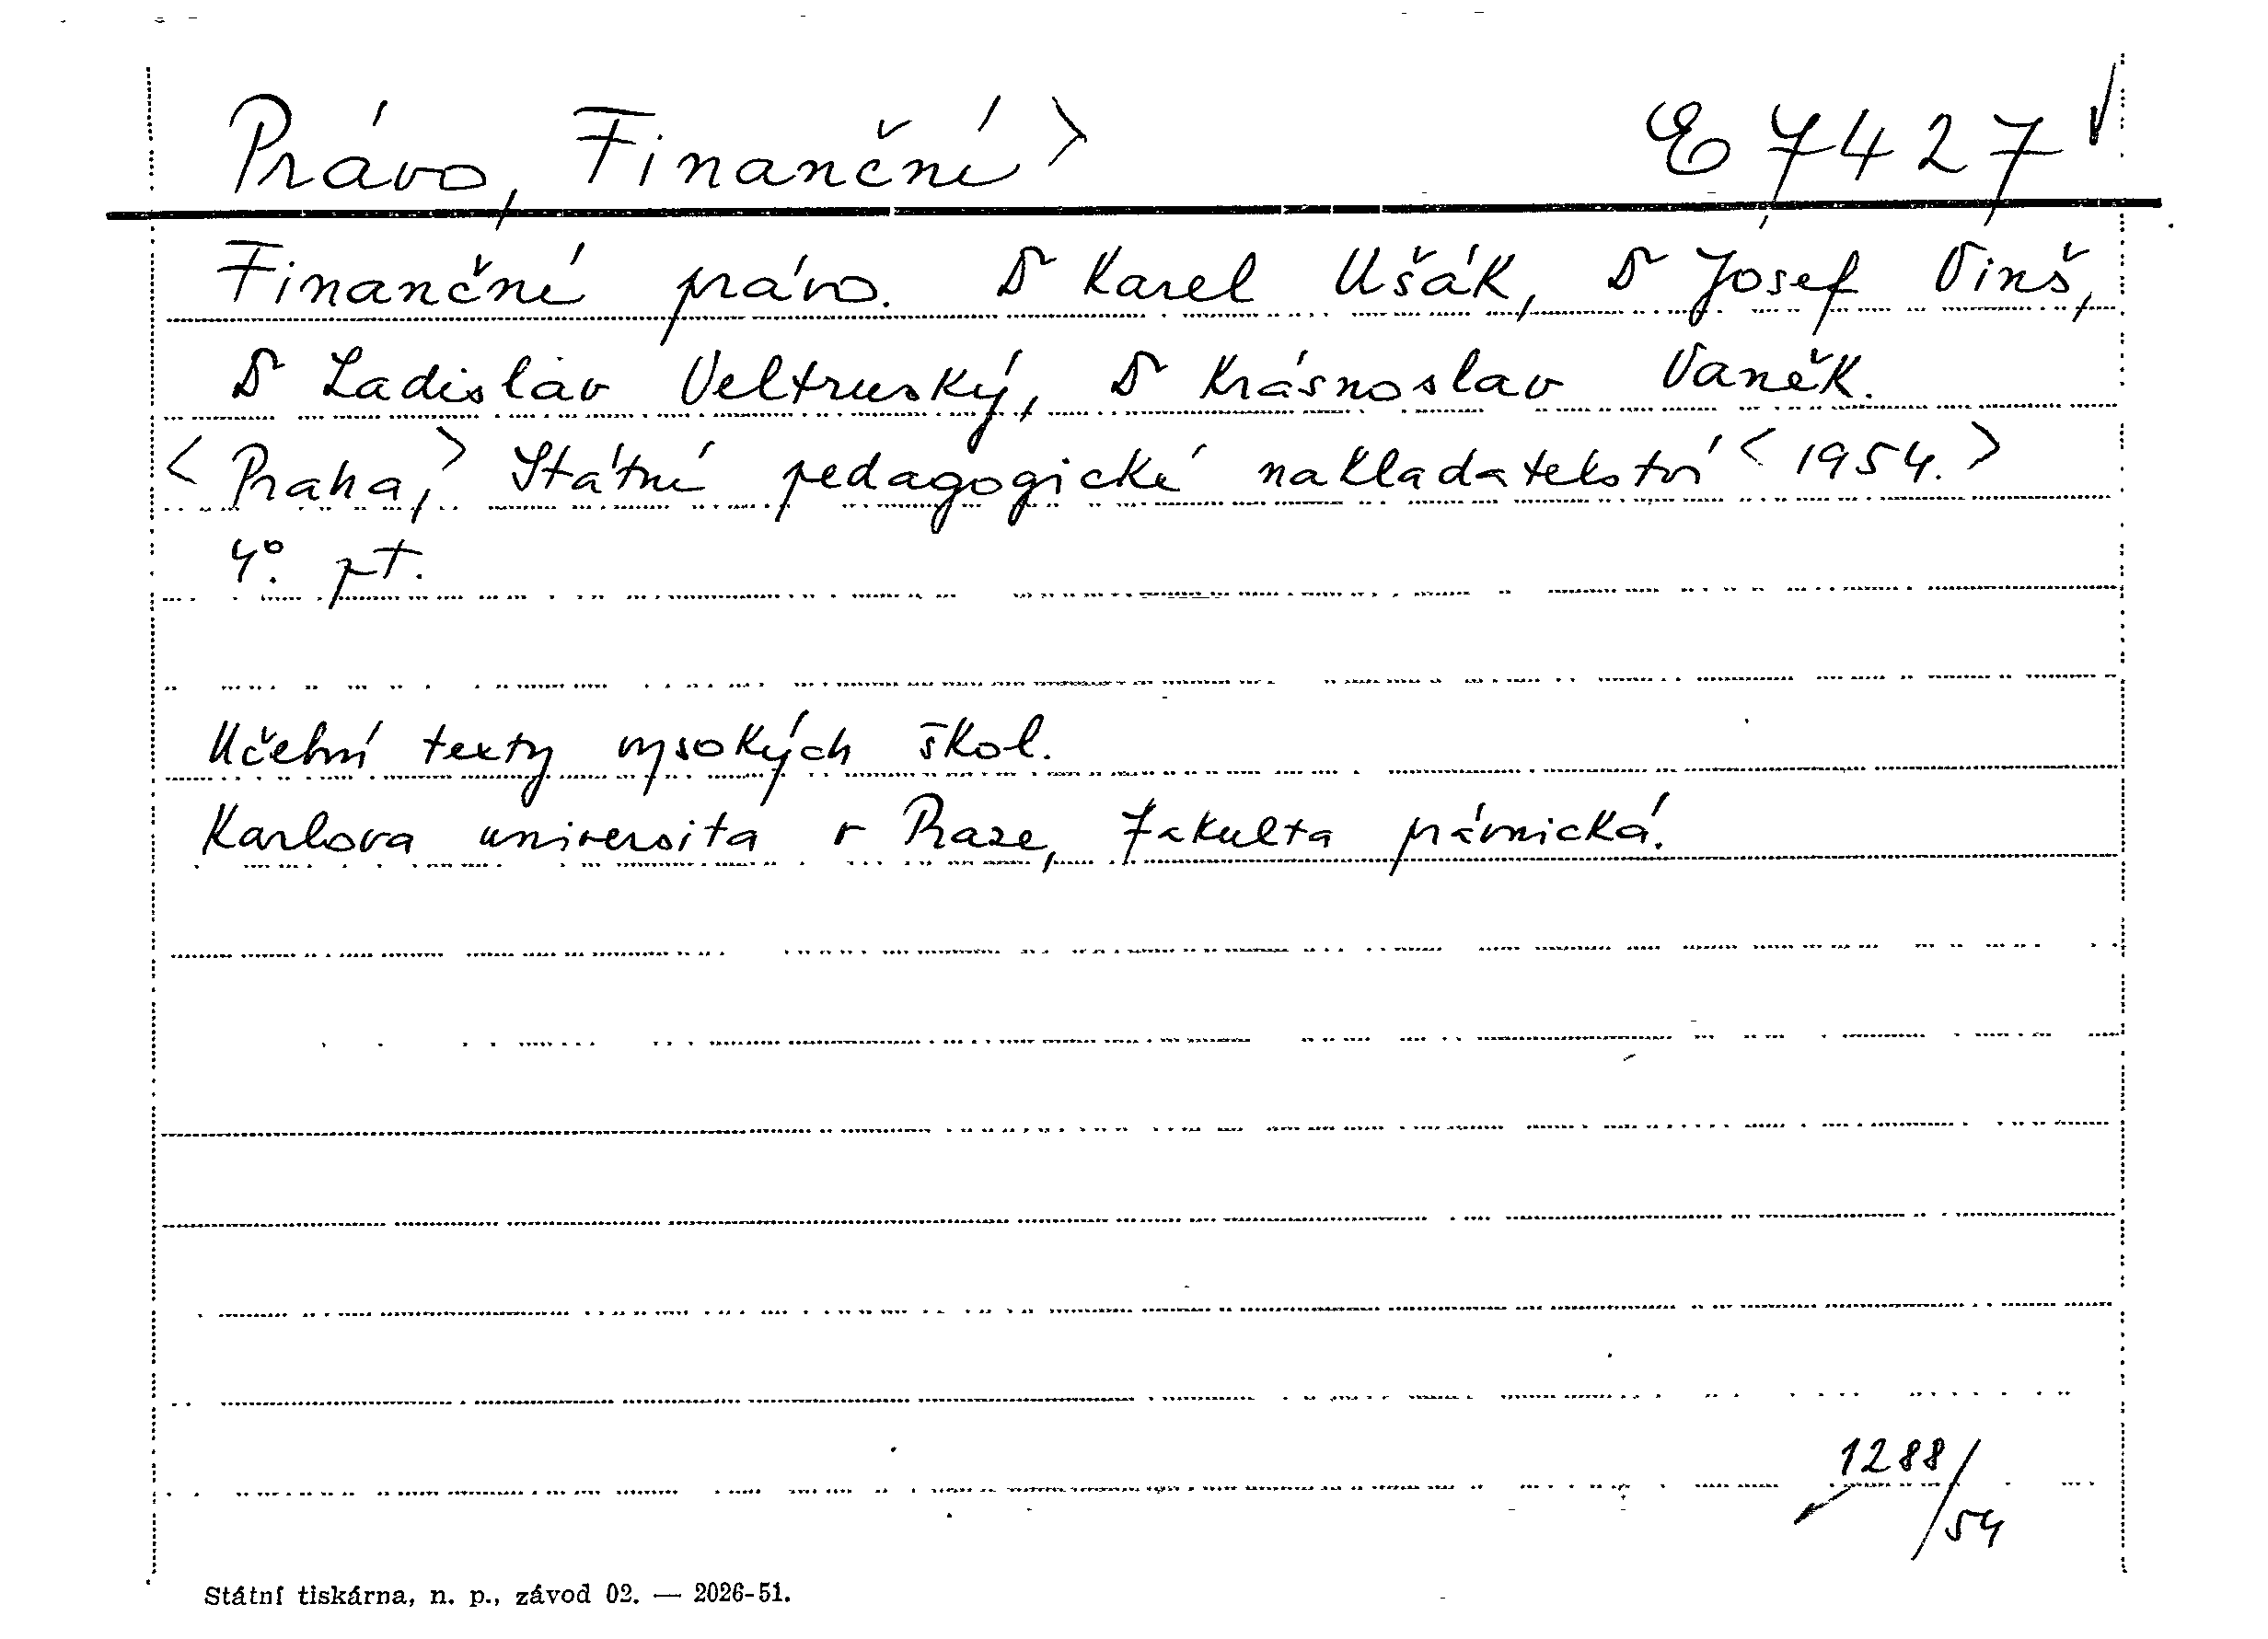 Právo, Finanční > E 7427
Finanční právo. Dr Karel Ušák, Dr Josef Vinš,
Dr Ladislav Veltruský, Dr Krásnoslav Vaněk.
<Praha,> Státní pedagogické nakladatelství <1954.>
4°. pt.
Učební texty vysokých škol.
Karlova universita v Praze, Fakulta právnická.
1288/54
Státní tiskárna, n. p., závod 02. — 2026-51.